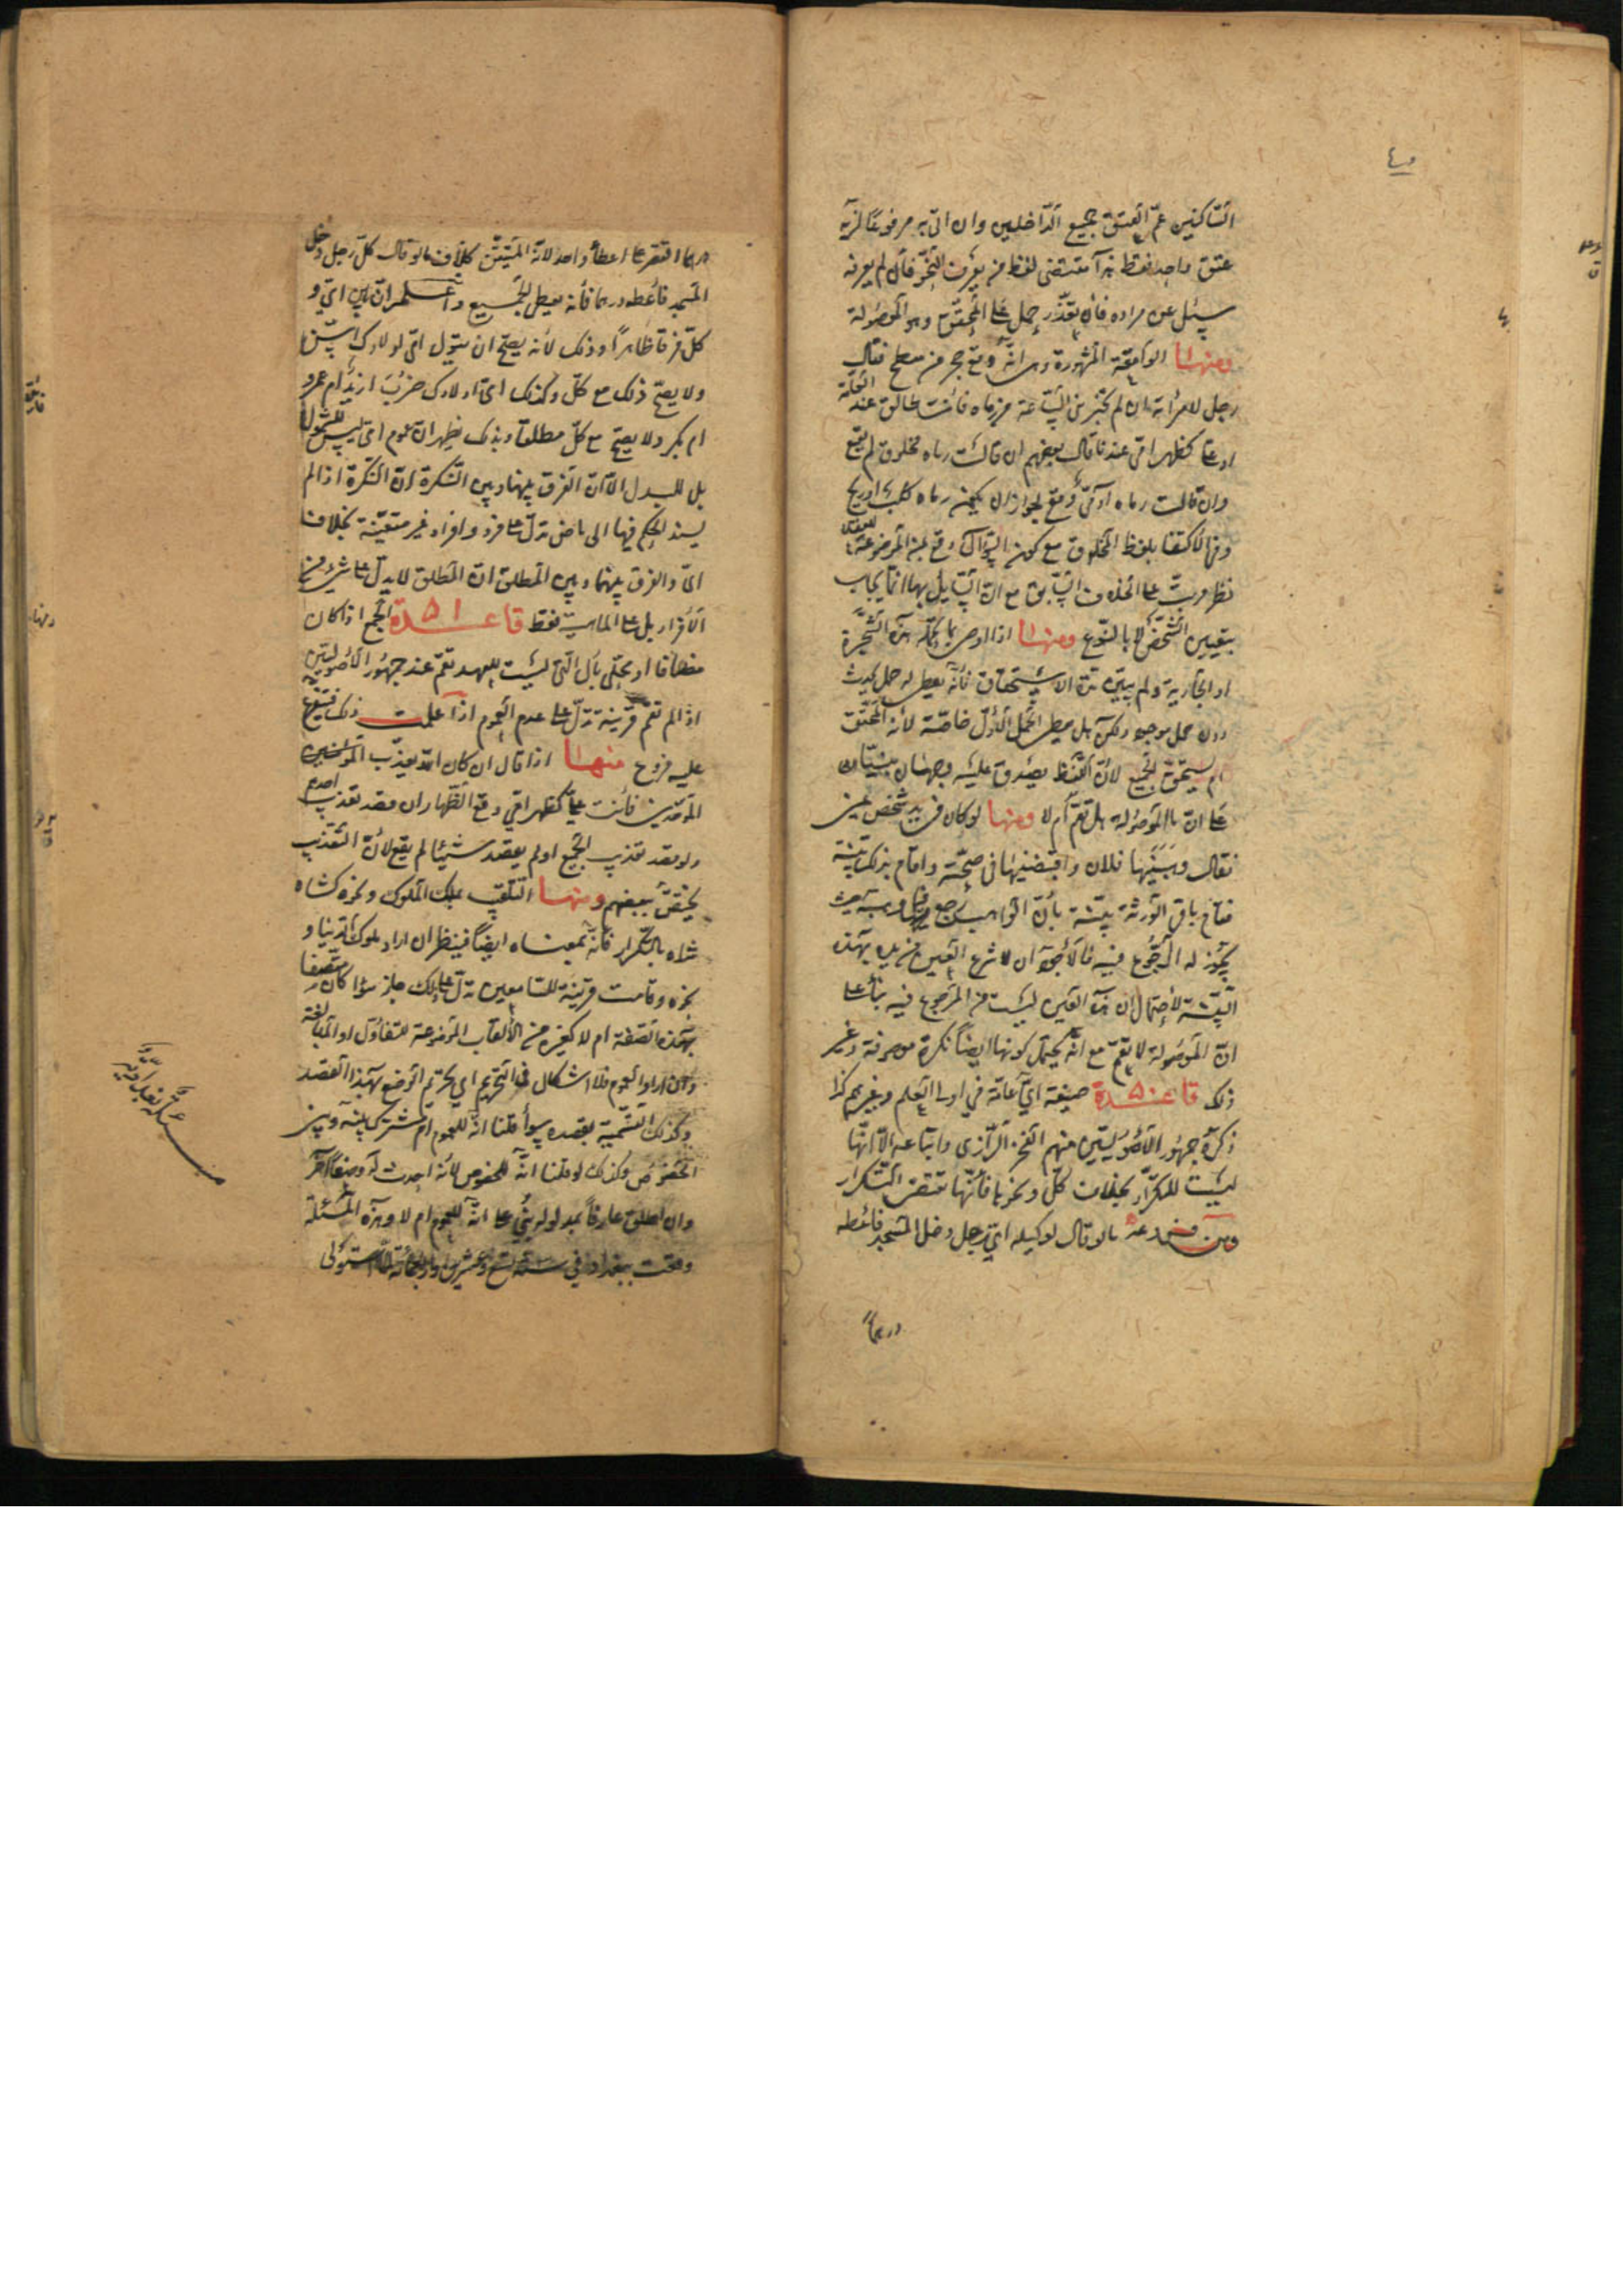 الساكنين عمّ العتق جميع الداخلين وان اتى به مرفوعا لزمه
عتق واحد فقط هذا مقتضى لفظ من يعرف النحو فان لم يعرفه
سئل عن مراده فان تعذّر حمل على المحقّق وهو الموصولة
ومنها الواقعة المشهورة وهى انه وقع حجر من سطح فقال
رجل لامرأته ان لم تخبرينى الساعة من رماه فانت طالق عند العامّة
او على كظهر امّى عندنا قال بعضهم ان قالت رماه مخلوق لم يقع
وان قالت رماه آدمى وقع لجواز ان يكون رماه كلب او ريح
وفى الاكتفا بلفظ المخلوق مع كون السؤال وقع بمن الموضوعة للعقلاء
نظر مرتب على الخلاف السابق مع ان السايل بها انما يجاب
بتعيين الشخص لا بالنوع ومنها اذا اوصى بما تحمله هذه الشجرة
او الجارية ولم يبين مدة الاستحقاق فانه يعطى له حمل يحدث
دون حمل موجود ولكن هل يعطى الحمل الاول خاصّة لأنه المحقّق
ام يستحق الجميع لأن اللفظ يصدق عليه وجهان مبنيّان
على ان ما الموصولة هل تعمّ ام لا ومنها لو كان فى يد شخص عين
فقال وهبنيها فلان واقبضنيها فى صحّته واقام بذلك بيّنة
فاقام باقى الورثة بيّنة بان الواهب رجع فيما وهبه حيث
يجوز له الرجوع فيه فالأجود ان لا تنزع العين من يده بهذه
البيّنة لاحتمال ان هذه العين ليست من المرجوع فيه بناء على
ان الموصولة لا تعمّ مع انه يحتمل كونها ايضا نكرة موصوفة وغير
ذلك قاعدة ٥٠ صيغة اىّ عامّة في اولى العلم وغيرهم كذا
ذكره جمهور الأصوليين منهم الفخر الرازى واتباعه الّا انّها
ليست للتكرّار بخلاف كلّ ونحوها فانّها تقتضى التكرار
ومن فروعه ما لو قال لوكيله اىّ رجل دخل المسجد فاعطه
درهماً
درهما اقتصر على اعطاء واحد لأنه المتيقّن بخلاف ما لو قال كلّ رجل دخل
المسجد فاعطه درهما فانه يعطى الجميع واعلم ان بين اىّ و
كلّ فرقا ظاهرا وذلك لأنه يصح ان يقول اىّ اولادك اسنّ
ولا يصحّ ذلك مع كلّ وكذلك اىّ اولادك ضربت ازيد ام عمرو
ام بكر ولا يصح مع كلّ مطلقا وبذلك يظهر ان عموم اىّ ليس للشمول
بل للبدل الا انّ الفرق بينها وبين النكرة ان النكرة اذا لم
يسند الحكم فيها الى ماض تدلّ على فرد وافراد غير متعيّنة بخلاف
اىّ والفرق بينها وبين المطلق ان المطلق لا يدلّ على شىء من
الأفراد بل على الماهية فقط قاعدة ٥١ الجمع اذا كان
مضافا او محلّى بأل التى ليست للعهد تعمّ عند جمهور الأصوليين
اذا لم تقم قرينة تدلّ على عدم العموم اذا علمت ذلك فيتفرع
عليه فروع منها اذا قال ان كان الله يعذّب
الموحّدين فانت علىّ كظهر امّي وقع الظهار ان قصد تعذيب احدهم
ولو قصد تعذيب الجميع او لم يقصد شيئا لم يقع لأن التعذيب
يختصّ ببعضهم ومنها التلقيب بملك الملوك ونحوه كشاه
شاه بالتكرار فانه بمعناه ايضا فينظر ان اراد ملوك الدنيا و
نحوه وقامت قرينة للسّامعين تدلّ على ذلك جاز سواء كان متّصفا
بهذه الصّفة ام لا كغيره من الألقاب الموضوعة للتفاؤل او المبالغة
وان اراد العموم فلا اشكال فى التحريم اى تحريم الوضع بهذا القصد
وكذلك التسمية بقصده سواء قلنا انه للعموم ام مشترك بينه وبين
الخصوص وكذلك لو قلنا انه للخصوص لأنه احدث له وضعا آخر
وان اطلق عارفاً بمدلوله بنى على انه للعموم ام لا وهذه المسئلة
وقعت ببغداد في سنة تسع وعشرين واربعمائة لمّا استولى